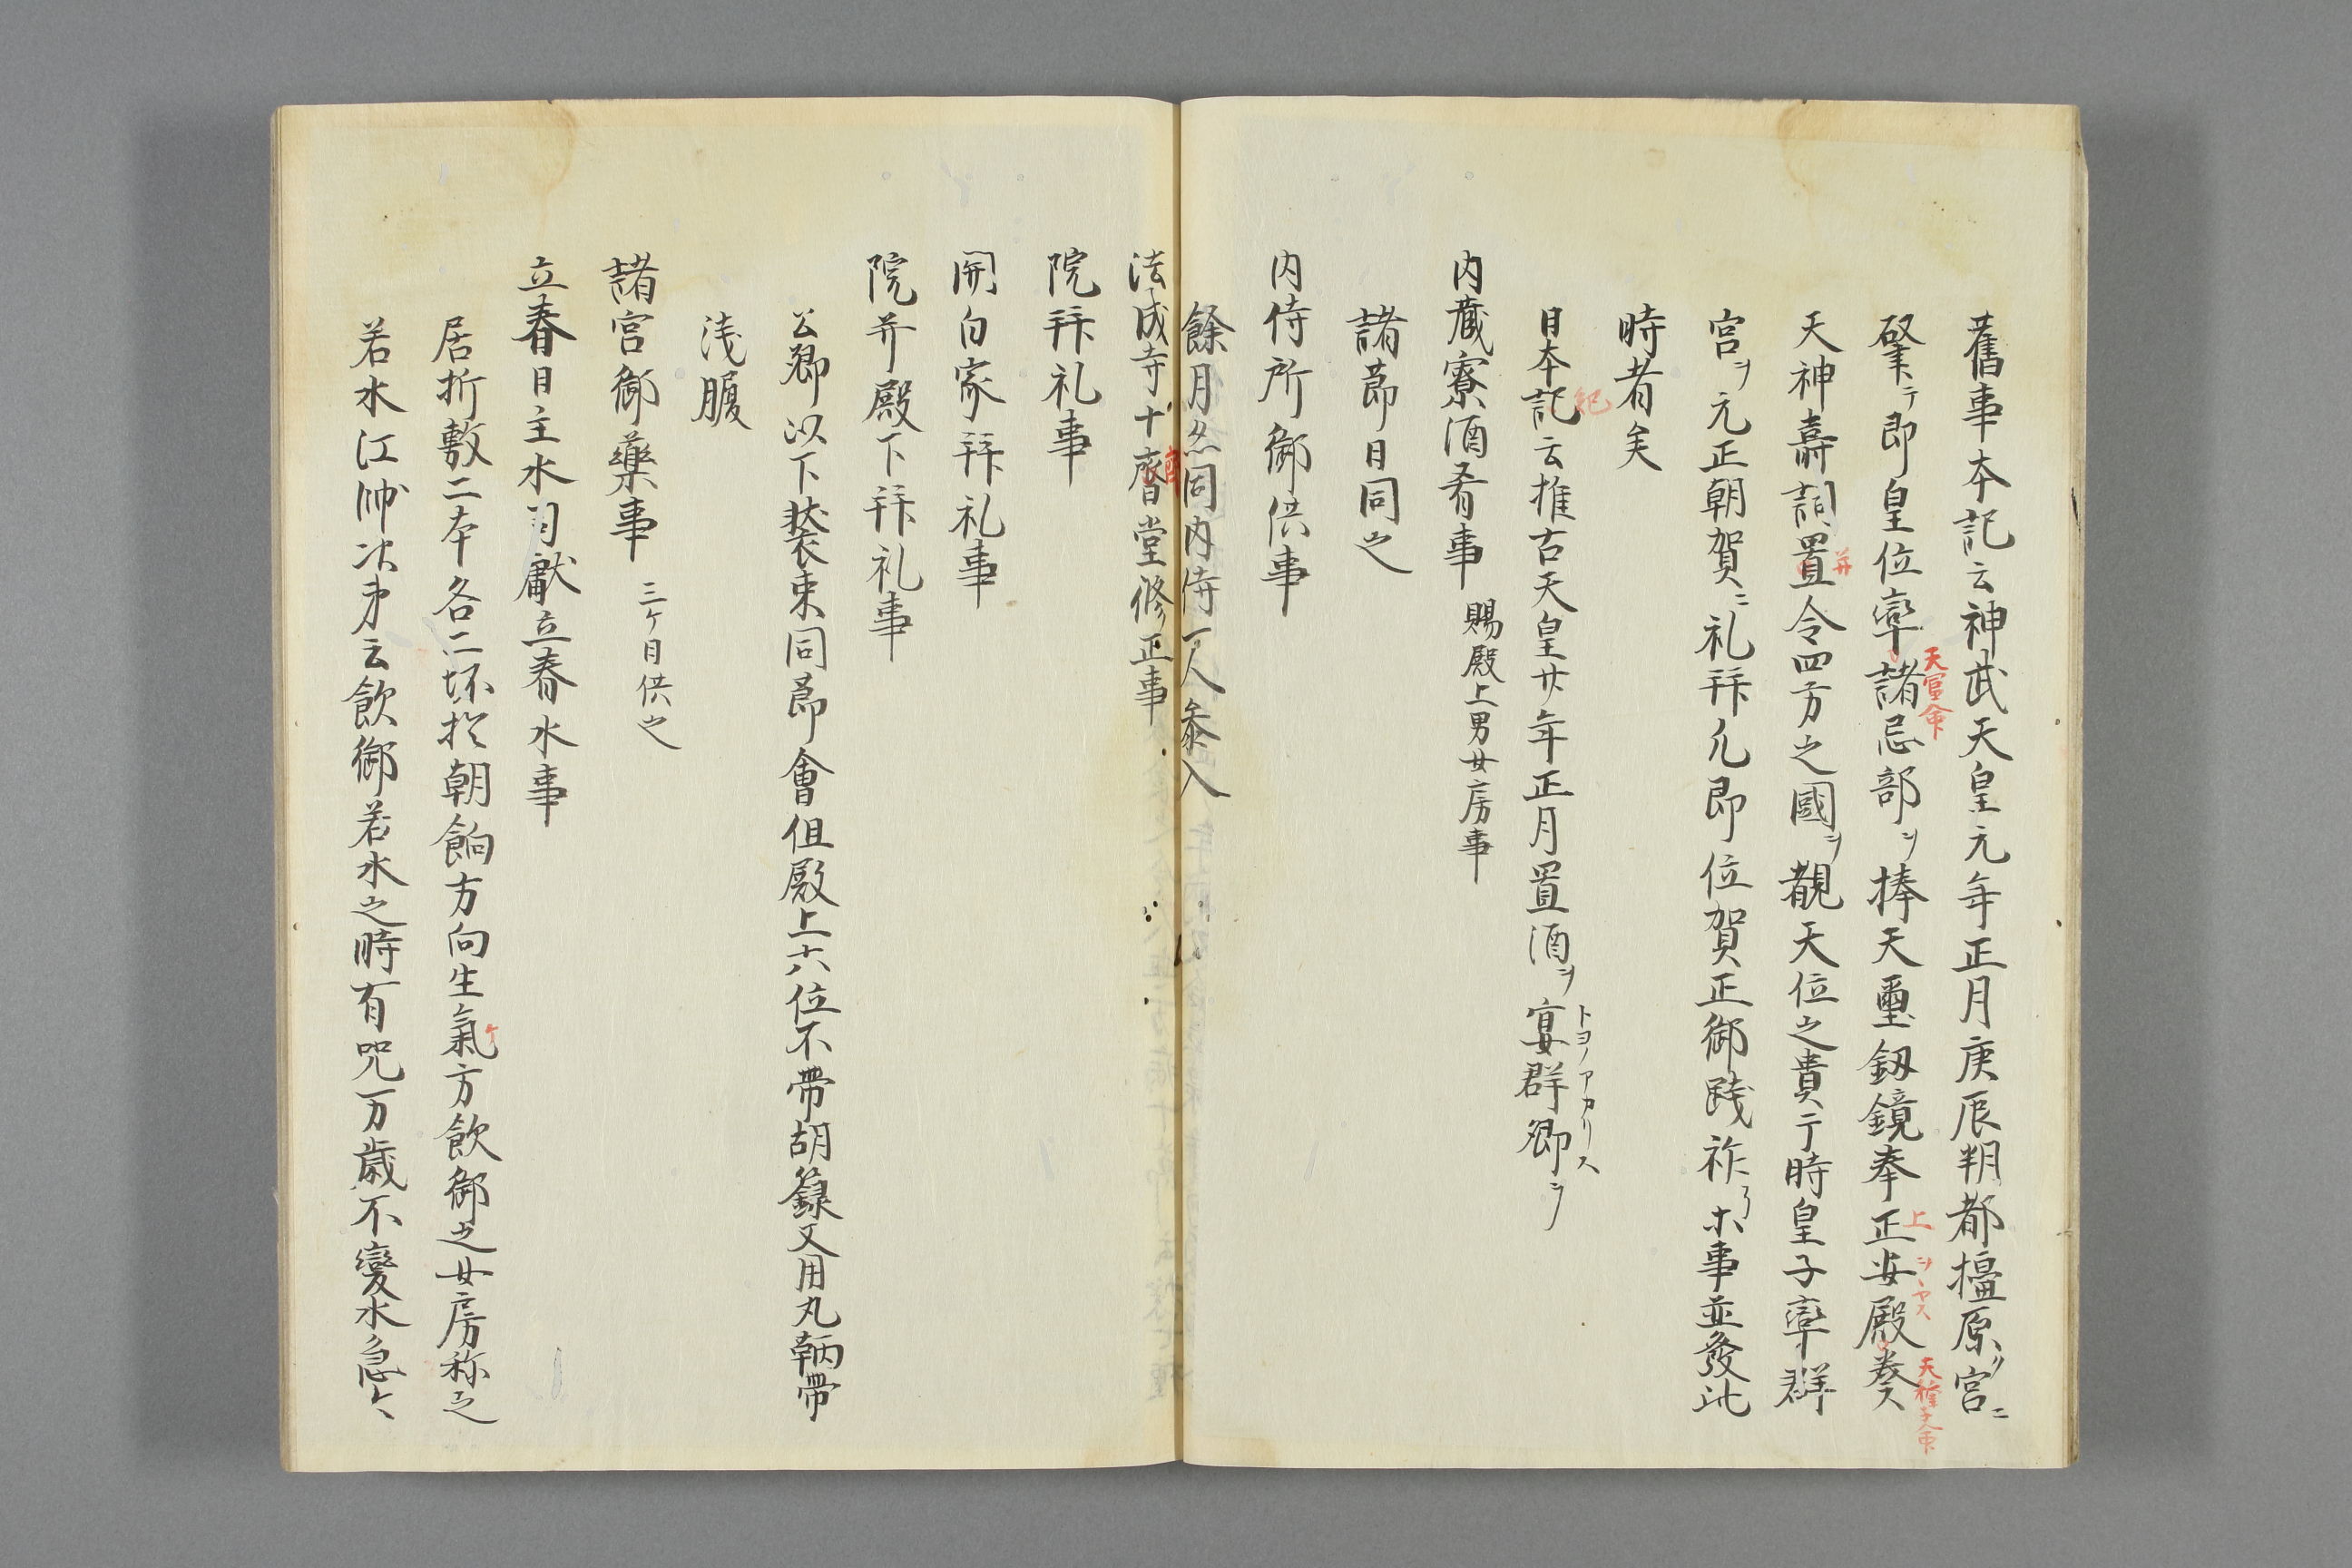 舊事本記云神武天皇元年正月庚辰朔都橿原ノ宮ニ
肇テ即皇位率諸忌部ヲ捧天璽釼鏡奉正安殿
天富命
上
天種子命
天神壽詞置令四方之國ヲ觀天位之貴于時皇子率群
并
宮ヲ元正朝賀ニ礼拜凢即位賀正御踐祚ホ事並發此
時者矣
日本記云推古天皇廿年正月置酒ヲ宴群卿ヲ
紀
トヨノアカリス
内藏寮酒肴事 賜殿上男女房事
諸節日同之
内侍所御供事
餘月亦同内侍一人参入
法成寺十齋堂修正事
院拜礼事
関白家拜礼事
院并殿下拜礼事
公卿以下装束同節會但殿上六位不帶胡籙又用丸鞆帶
淺履
諸宮御藥事 三ケ日供之
立春日主水司獻立春水事
居折敷二本各二坏於朝餉方向生氣方飲御之女房称之
若水江帥次第云飲御若水之時有咒一万歳不變水急々